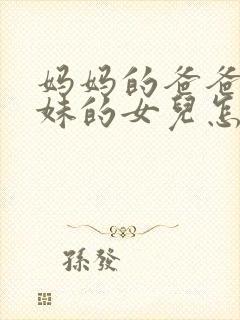 妈妈的爸爸
妹的女兒怎
孫發